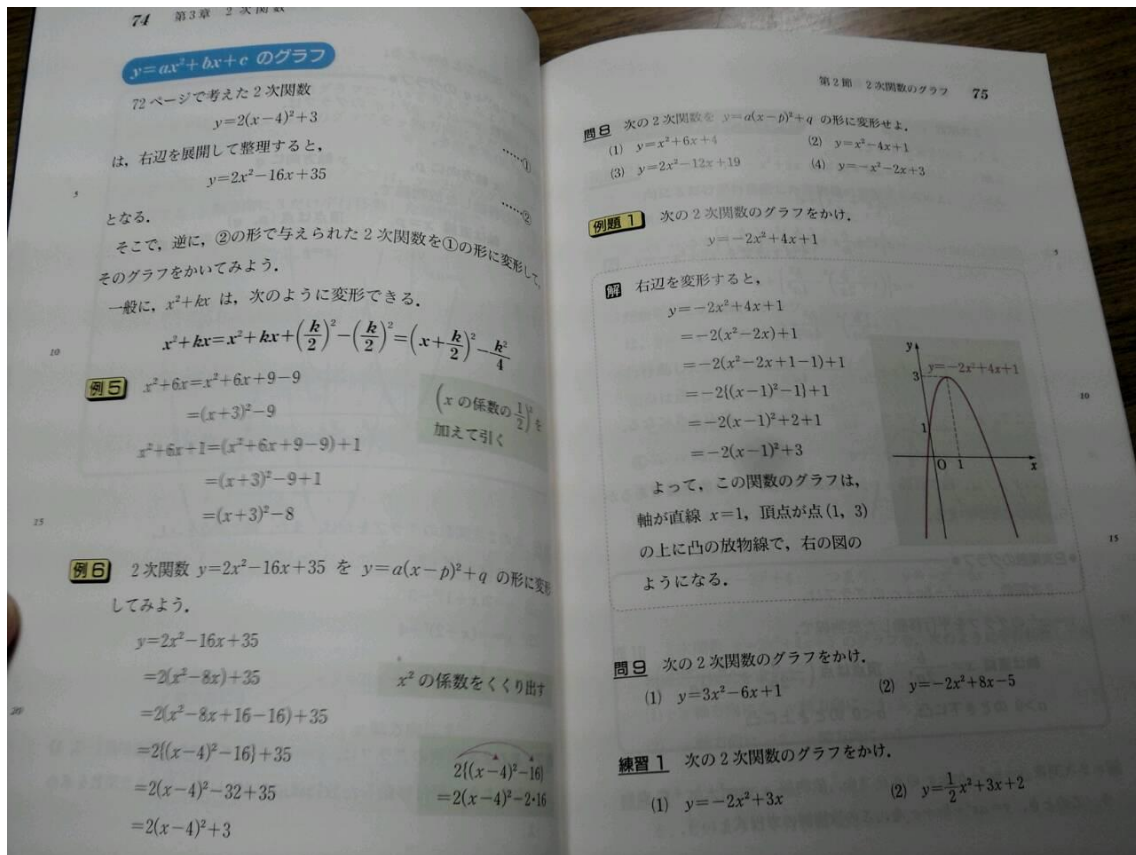 74 第3章 2次関数
y=ax²+bx+c のグラフ
72ページで考えた2次関数
y=2(x-4)²+3 ……①
は，右辺を展開して整理すると，
y=2x²-16x+35 ……②
5
となる．
そこで，逆に，②の形で与えられた2次関数を①の形に変形して，
そのグラフをかいてみよう．
一般に，x²+kx は，次のように変形できる．
10
x²+kx=x²+kx+(k/2)²-(k/2)²=(x+k/2)²-k²/4
例5 x²+6x=x²+6x+9-9
=(x+3)²-9
x²+6x+1=(x²+6x+9-9)+1
=(x+3)²-9+1
15
=(x+3)²-8
(xの係数の1/2)²を
加えて引く
例6 2次関数 y=2x²-16x+35 を y=a(x-p)²+q の形に変形
してみよう．
y=2x²-16x+35
=2(x²-8x)+35
x²の係数をくくり出す
20
=2(x²-8x+16-16)+35
=2{(x-4)²-16}+35
=2(x-4)²-32+35
=2(x-4)²+3
2{(x-4)²-16}
=2(x-4)²-2・16
第2節 2次関数のグラフ 75
問8 次の2次関数を y=a(x-p)²+q の形に変形せよ．
(1) y=x²+6x+4 (2) y=x²-4x+1
(3) y=2x²-12x+19 (4) y=-x²-2x+3
例題1 次の2次関数のグラフをかけ．
y=-2x²+4x+1
5
解 右辺を変形すると，
y=-2x²+4x+1
=-2(x²-2x)+1
=-2(x²-2x+1-1)+1
=-2{(x-1)²-1}+1
10
=-2(x-1)²+2+1
=-2(x-1)²+3
よって，この関数のグラフは，
軸が直線 x=1，頂点が点(1, 3)
の上に凸の放物線で，右の図の
15
ようになる．
y
y=-2x²+4x+1
3
1
O 1 x
問9 次の2次関数のグラフをかけ．
(1) y=3x²-6x+1 (2) y=-2x²+8x-5
練習1 次の2次関数のグラフをかけ．
(1) y=-2x²+3x (2) y=1/2x²+3x+2